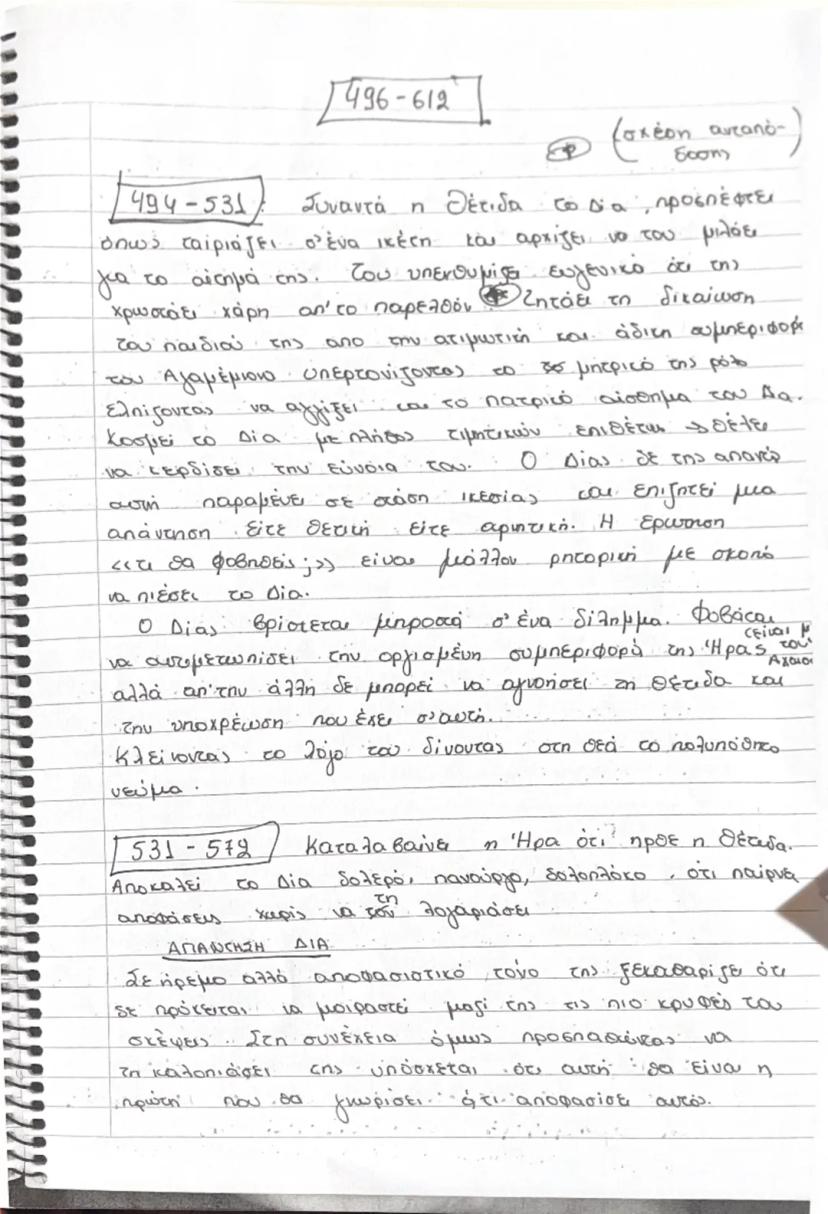 496-612
(σχέση ανταπό-
δοσης)
494-531 : Συναντά η Θέτιδα το Δία, προσπέφτει
όπως ταιριάζει σ'ένα ικέτη και αρχίζει να του μιλάει
για το αίτημά της. Του υπενθυμίζει ευγενικά ότι της
χρωστάει χάρη απ'το παρελθόν. Ζητάει τη δικαίωση
του παιδιού της απο την ατιμωτική και άδικη συμπεριφορά
του Αγαμέμνονα υπερτονίζοντας το μητρικό της ρόλο
ελπίζοντας να αγγίξει και το πατρικό αίσθημα του Δία.
Κοσμεί το Δία με πλήθος τιμητικών επιθέτων → θέλει
να κερδίσει την εύνοια του. Ο Δίας δε της απαντά
αυτή παραμένει σε στάση ικεσίας και επιζητεί μια
απάντηση είτε θετική είτε αρνητική. Η ερώτηση
<<τι θα φοβηθείς;>> είναι μάλλον ρητορική με σκοπό
να πιέσει το Δία.
Ο Δίας βρίσκεται μπροστά σ'ένα δίλημμα. Φοβάται
να αντιμετωπίσει την οργισμένη συμπεριφορά της Ήρας (είναι με τους Αχαιοί
αλλά απ'την άλλη δε μπορεί να αγνοήσει τη Θέτιδα και
την υποχρέωση που έχει σ'αυτή.
Κλείνοντας το λόγο του δίνοντας στη θεά το πολυπόθητο
νεύμα.
531-572 Καταλαβαίνει η Ήρα ότι ήρθε η Θέτιδα.
Αποκαλεί το Δία δολερό, πανούργο, δολοπλόκο, ότι παίρνει
αποφάσεις χωρίς να τη λογαριάσει
ΑΠΑΝΤΗΣΗ ΔΙΑ
Σε ήρεμο αλλά αποφασιστικό τόνο της ξεκαθαρίζει ότι
δε πρόκειται να μοιραστεί μαζί της τις πιο κρυφές του
σκέψεις. Στη συνέχεια όμως προσπαθώντας να
τη καλοπιάσει της υπόσχεται ότι αυτή θα είναι η
πρώτη που θα γνωρίσει ό,τι αποφασίσει αυτός.